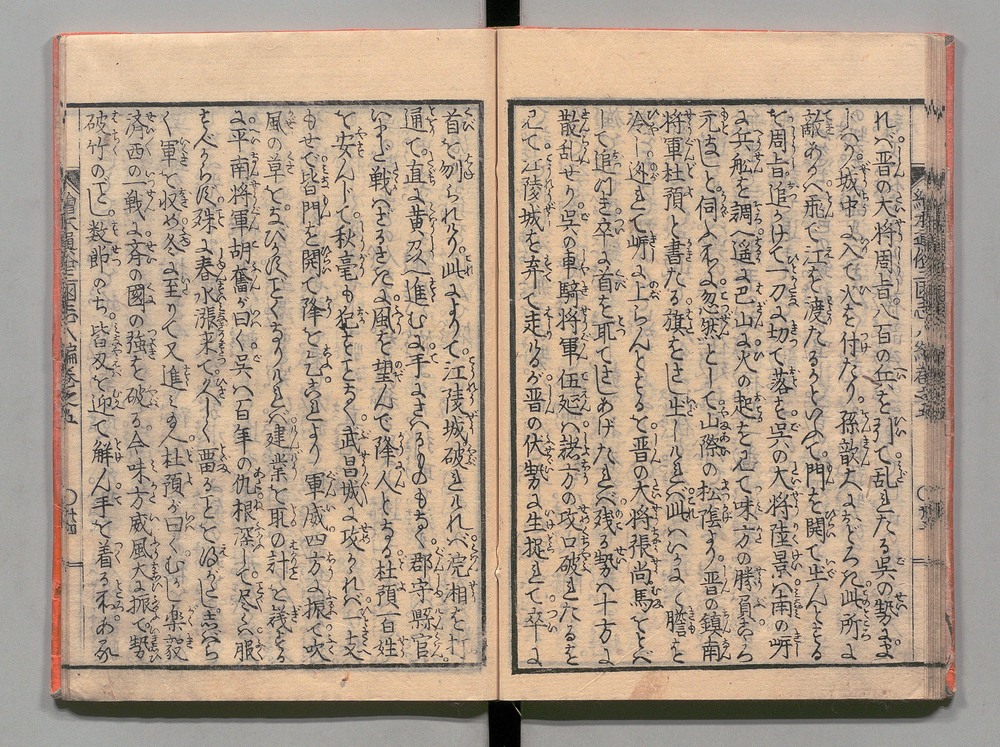 れバ晋の大将周旨八百の兵を引て乱れたる呉の勢にま
じへり城中に入て火を付たり孫歆大におどろき此所に
敵あるハ飛で江を渡たるかといふて門を開て出んとする
を周旨追かけて一刀に切て落す呉の大将陸景ハ南の岸
に兵舩を調へ遥に巴山に火の起るを見て味方の勝負いかゞ
元
将軍杜預と書たる旗をさし出しければ此ハいかにと膽を
冷し逃て岸に上らんとする所を晋の大将張尚馬をとバ
して追付き卒に首を取てさしあげたれバ残る勢ハ十方に
散乱せり呉の車騎将軍伍延ハ諸方の攻口破れたるを
見て江陵城を弃て走りけるが晋の伏勢に生捉れて卒に
首を刎られけり此によりて江陵城破れければ沅湘を打
通て直に黄州へ進むに手にさハるものもなく郡守縣官
いまだ戦ハざるさきに風を望んで降人となる杜預百姓
を安んじて秋毫も犯すことなく武昌城に攻かゝれバ一支
もせで皆門を開て降を乞これより軍威四方に振て吹
風の草をなびかすごとくなりければ建業を取の計を議する
に平南将軍胡奮が曰く呉ハ百年の仇根深して尽くハ服
すべからず殊に春水漲来て久しく畄ることを得がたししバら
く軍を収め冬に至りて又進ミ玉へ杜預が曰くむかし楽毅
済西の一戦に斉の國の強を破る今味方威風大に振て勢
破竹のごとし数節のち皆刃を迎て解ん手を着る所あら